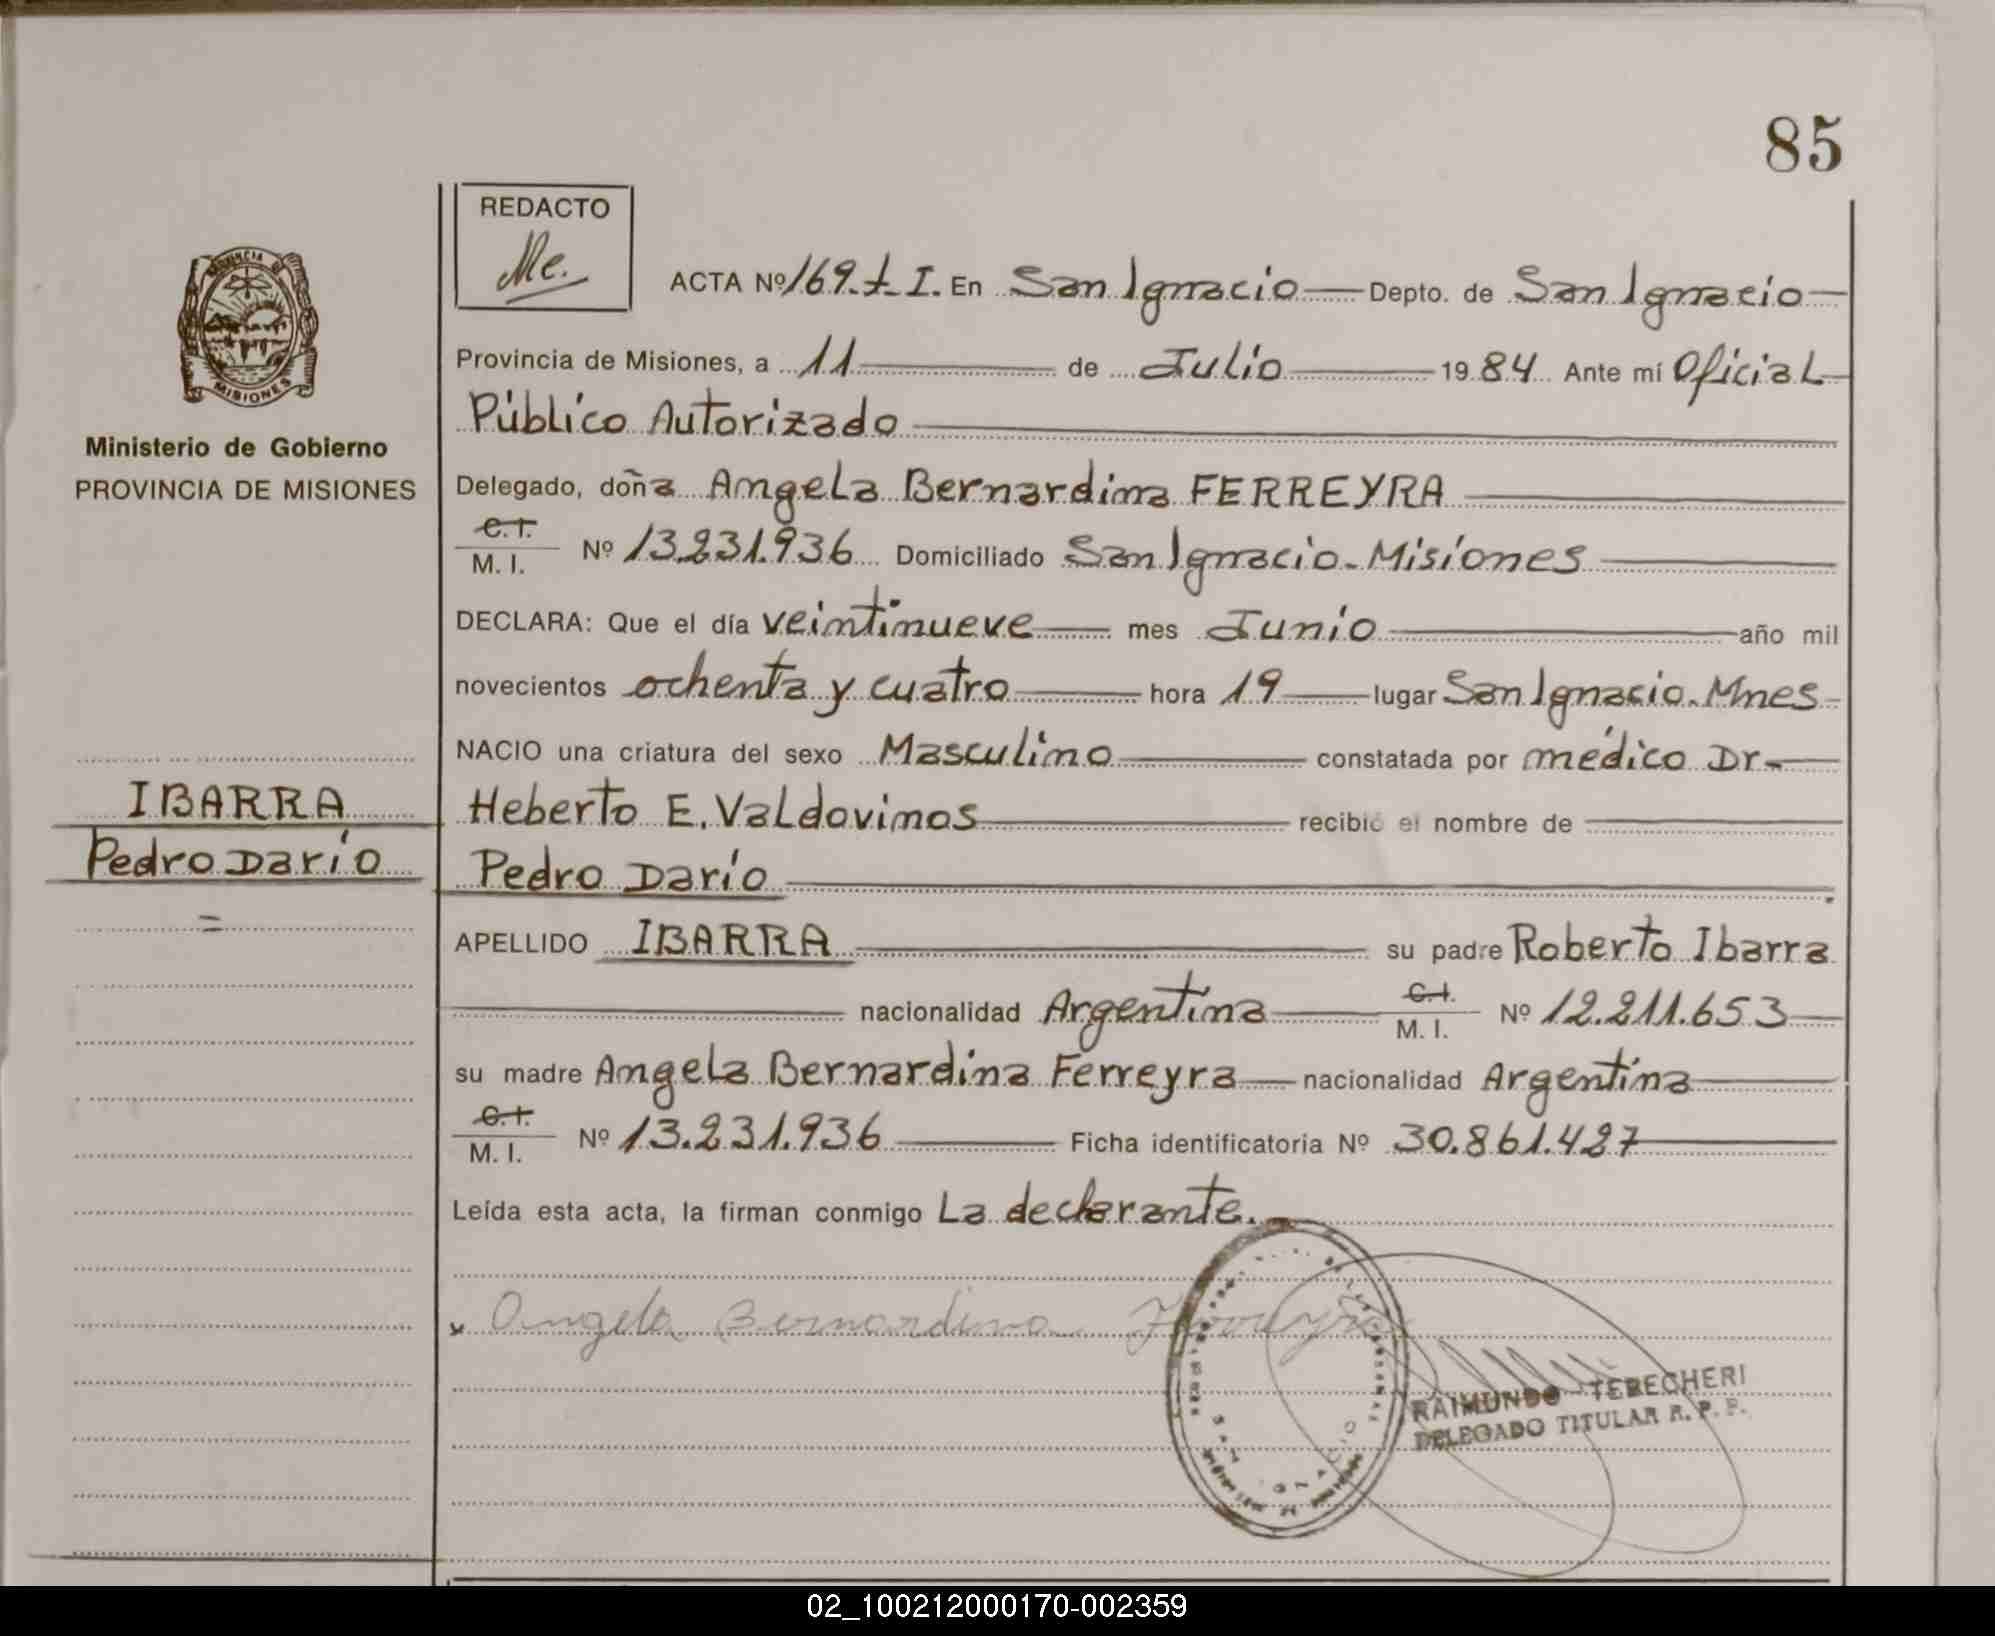 85
REDACTO
Me.
ACTA Nº 169-t-I. En San Ignacio Depto. de San Ignacio
Provincia de Misiones, a 11 de Julio 1984 Ante mí Oficial
Público Autorizado
Ministerio de Gobierno
PROVINCIA DE MISIONES
Delegado, doña Angela Bernardina FERREYRA
C.I.
M. I. Nº 13.231.936 Domiciliado San Ignacio-Misiones
DECLARA: Que el día veintinueve mes Junio año mil
novecientos ochenta y cuatro hora 19 lugar San Ignacio-Mnes
NACIO una criatura del sexo Masculino constatada por médico Dr-
IBARRA
Pedro Darío
Heberto E. Valdovinos recibió el nombre de
Pedro Darío
APELLIDO IBARRA su padre Roberto Ibarra
nacionalidad Argentina C.I.
M. I. Nº 12.211.653
su madre Angela Bernardina Ferreyra nacionalidad Argentina
C.I.
M. I. Nº 13.231.936 Ficha identificatoria Nº 30.861.427
Leída esta acta, la firman conmigo La declarante.
Angela Bernardina Ferreyra
RAIMUNDO TERECHERI
DELEGADO TITULAR R. P. P.
02_100212000170-002359